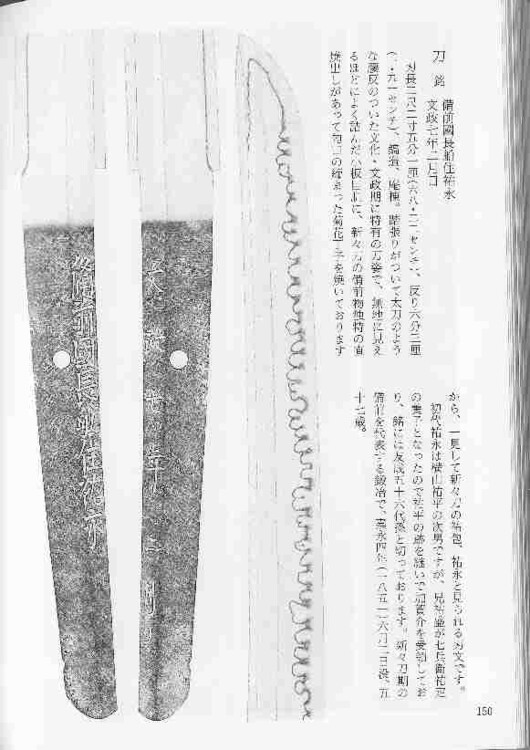 刀 銘 備前國長船住祐永
文政七年二月日
刃長二尺二寸五分一厘(六八・二一センチ)、反り六分三厘
(一・九一センチ)、鎬造、庵棟。踏張りがついて太刀のよう
な腰反のついた文化・文政期に特有の刀姿で、無地に見え
るほどによく詰んだ小板目肌に、新々刀の備前物独特の直
焼出しがあって匂口の締まった菊花丁子を焼いております
から、一見して新々刀の祐包、祐永と見られる刃文です。
初代祐永は横山祐平の次男ですが、兄祐盛が七兵衛祐定
の養子となったので祐平の跡を継いで加賀介を受領してお
り、銘には友成五十六代孫と切っております。新々刀期の
備前を代表する鍛冶で、嘉永四年(一八五一)六月二日没、五
十七歳。
備前國長船住祐永
150